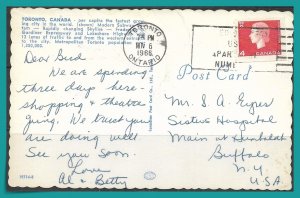 TORONTO, CANADA - per capita the fastest grow-
ing city in the world (shown) Modern Subway
- Rapidly changing Skyline -
Gardiner Expressway and Lakeshore Highway
12 lanes of traffic to and from the western entrance
to the city. Metropolitan Toronto population
TORONTO
PM
NOV 6
1966
ONTARIO
CANADA
Dear Bird
We are spending
three days here -
shopping & theatre
going. We trust you
are doing well
See you soon.
Love
Al & Betty
Post Card
Mr. S. A.
Sisters Hospital
Main at Humboldt
Buffalo
N.Y.
U.S.A.